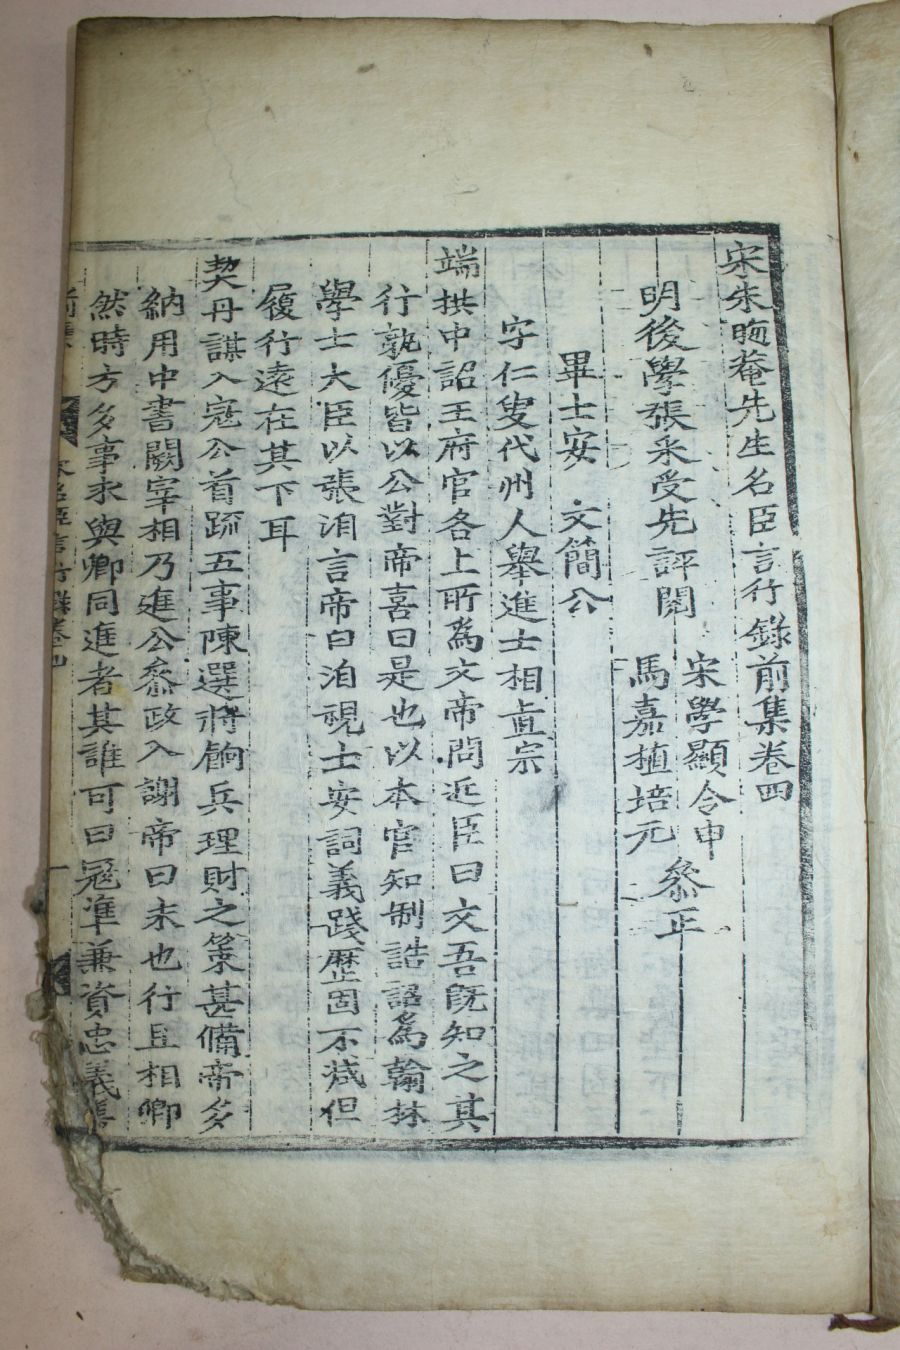 宋朱晦菴先生名臣言行錄前集卷四
明後學張采受先評閱
宋學顯令申
馬嘉植培元
叅正
畢士安 文簡公
字仁叟代州人舉進士相眞宗
端拱中詔王府官各上所爲文帝問近臣曰文吾旣知之其
行孰優皆以公對帝喜曰是也以本官知制誥詔爲翰林
學士大臣以張洎言帝曰洎視士安詞義踐歷固不減但
履行遠在其下耳
契丹謀入寇公首疏五事陳選將餉兵理財之策甚備帝多
納用中書闕宰相乃進公叅政入謝帝曰未也行且相卿
然時方多事求與卿同進者其誰可曰寇準兼資忠義善
前集
宋名臣言行錄卷四
一